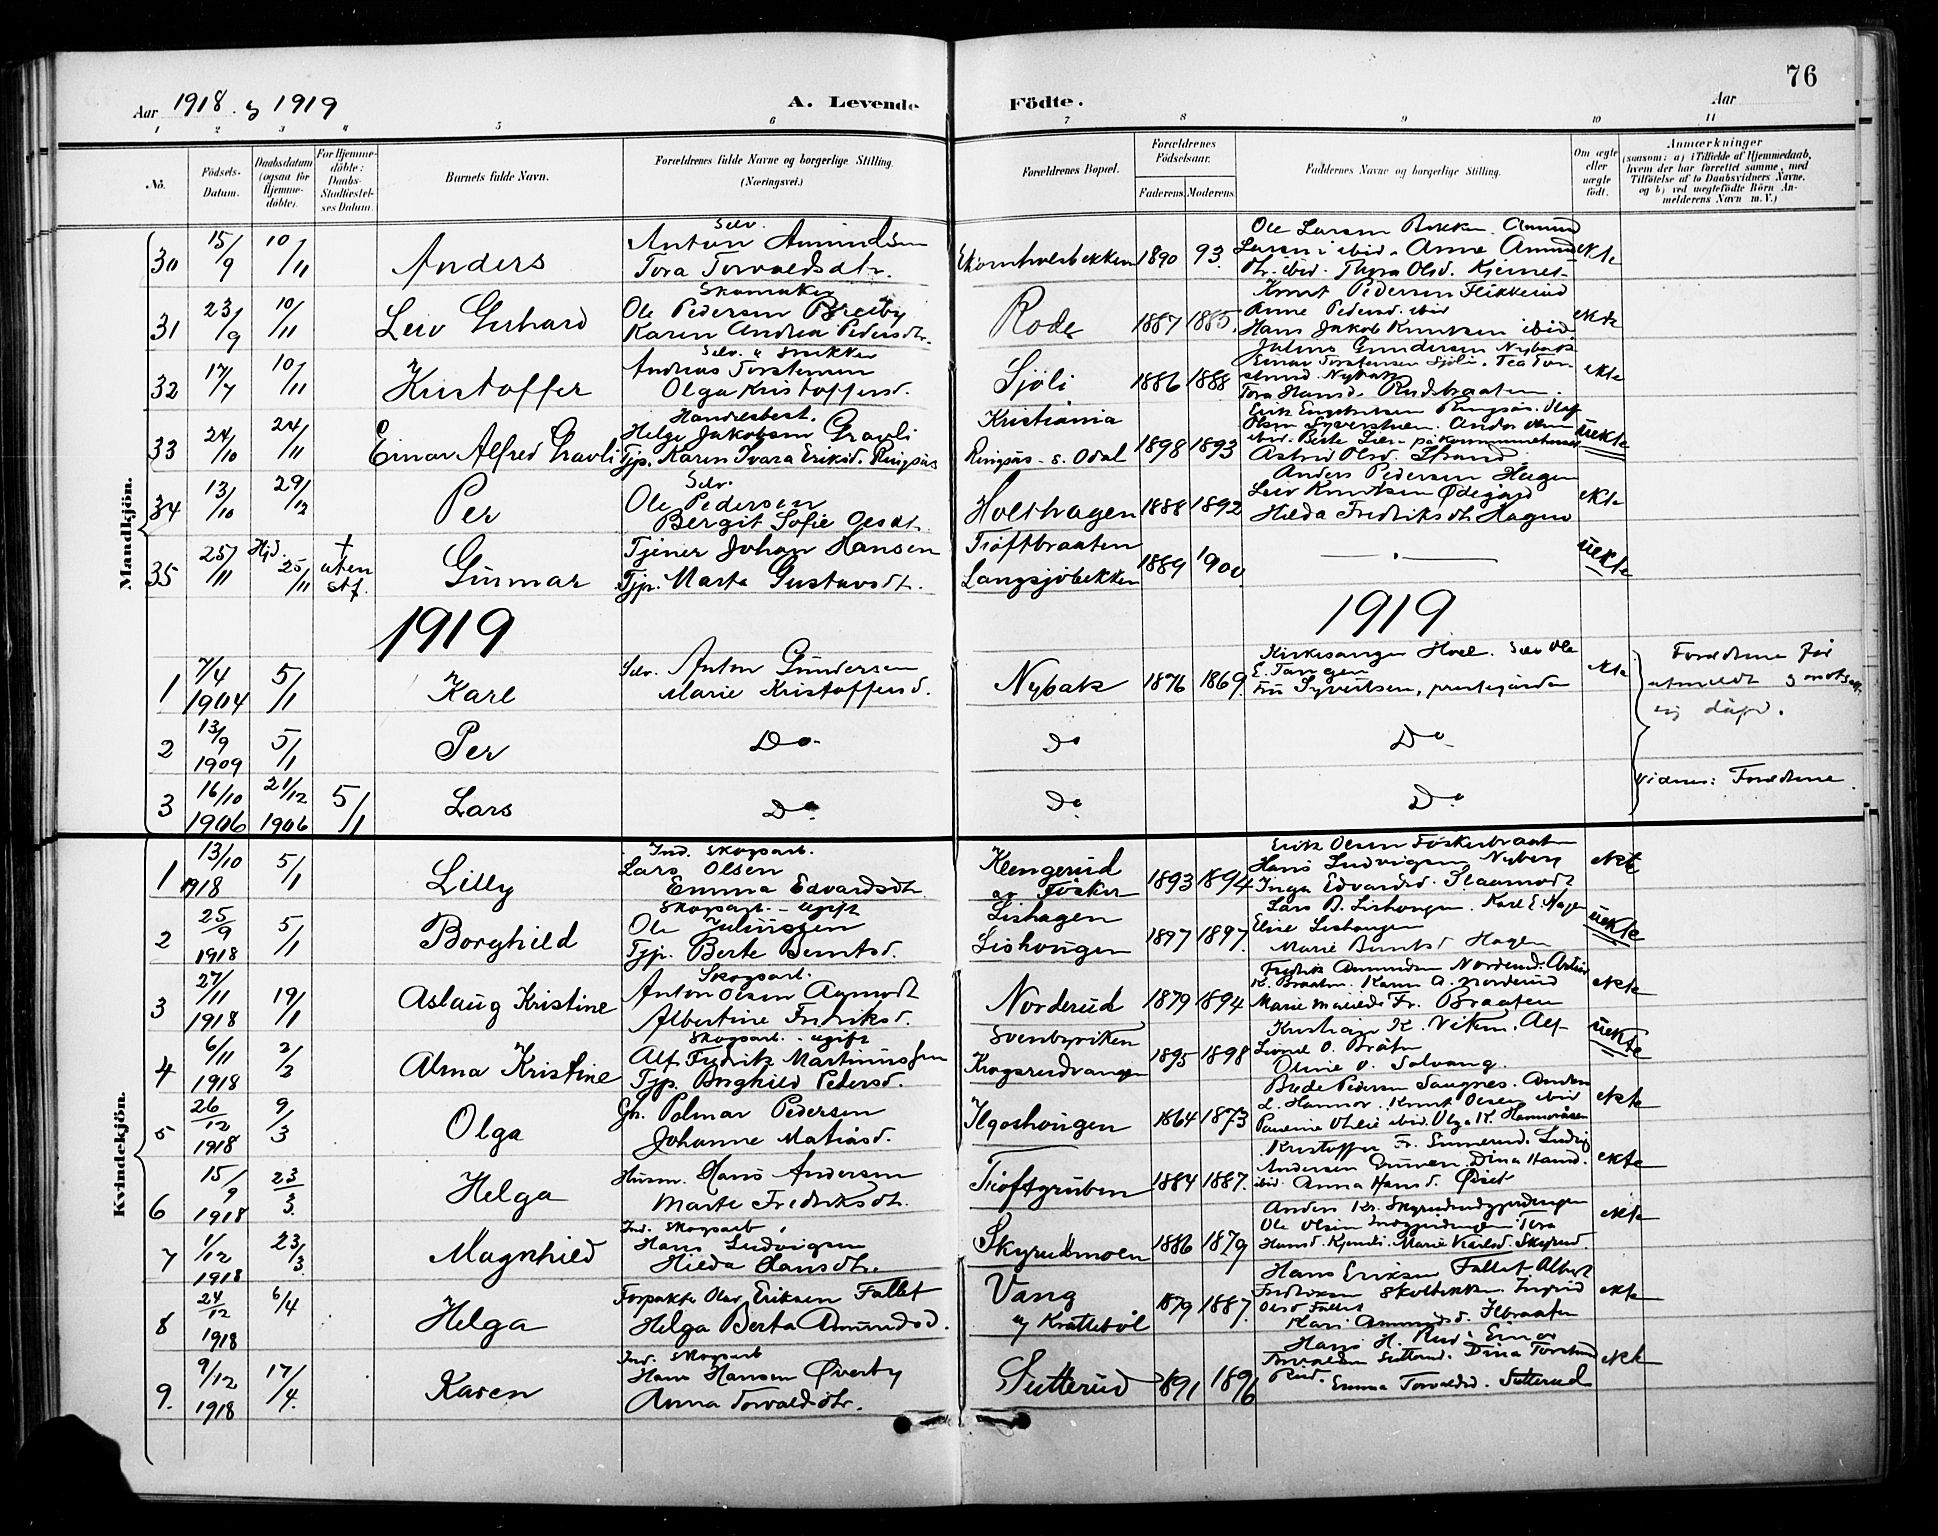 76
Aar 1918 og 1919
A. Levende Födte.
Aar
1 2 3 4 5 6 7 8 9 10 11
No.
Födsels-Datum.
Daabsdatum (ogsaa for Hjemme-döbte).
For Hjemme-döbte: Daabs-Stadfæstel-ses Datum.
Barnets fulde Navn.
Forældrenes fulde Navne og borgerlige Stilling. (Næringsvei.)
Forældrenes Bopæl.
Forældrenes Födselsaar.
Faderens. Moderens.
Faddernes Navne og borgerlige Stilling.
Om ægte eller uægte født.
Anmærkninger
(saasom: a) i Tilfælde af Hjemmedaab, hvem der har forrettet samme, med Tilföielse af to Daabsvidners Navne, og b) ved uægtefödte Börn Anmelderens Navn m. V.)
Mandkjön.
30 15/9 10/11 Anders
Selv.
Anton Amundsen
Tora Torvaldsdtr.
1890 93.
Ole Larsen Bekken. Amund
Larsen ibid. Anne Amunds
dtr. ibid. Thora Olsd. Kjernes
ekte
31 23/9 10/11 Leiv Gerhard
Skomaker
Ole Pedersen Breiby
Karen Andrea Pedersdtr.
Rode 1887 1885.
Knut Pedersen Flikkerud
Anne Pedersd. ibid
Hans Jakob Knutsen ibid
ekte
32 17/7 10/11 Kristoffer
Selv. & Snikker
Andreas Torstensen
Olga Kristoffersd.
Sjöli 1886 1888
Julius Gundersen Nybak
Einar Torstensen Sjöli. Tea
Nybak
Tora Hansd. Rudsbraaten.
ekte
33 24/10 24/11 Einar Alfred Gravli
Handelsbest.
Helge Jakobsen Gravli
Tjp. Karen Ivara Eriksd. Ringsås
Kristiania
Ringsås - S. Odal 1898 1893
Erik Engebretsen Ringsås. Olaf
Olsen Syverstuen.
ibid. Berte Lie - på kommunehuset
Astrid Olsd. Strand
uekte
34 13/10 29/12 Per
Selv.
Ole Pedersen
Bergit Sofie Olsdt.
Holthagen 1888 1892
Anders Pedersen Hagen
Leiv Knutsen Ødegård
Hilda Fredriksdt. Hagen
ekte
35 25/11 Hjd. 25/11 † uten stf. Gunnar
Tjener Johan Hansen
Tjp. Marta Gustavsdt.
Tröftbraaten
Langsjöbekken 1889 1900
uekte
1919 1919
1 7/4 1904 5/1 Karl
Selv. Anton Gundersen
Marie Kristoffersd.
Nybak 1876 1869
Kirkesanger Hoel. Selv Ole
E. Tangen
Fru Syvertsen, prestegården
ekte
Foreldrene før utmeldt
2 13/9 1909 5/1 Per
Do Do Do
3 16/10 1906 21/12 1906 5/1 Lars
Do Do Do
Vidner: Foreldrene.
Kvindekjön.
1 13/10 1918 5/1 Lilly
Ind. Skogsarb.
Lars Olsen
Emma Edvardsdt.
Klengerud
av Fösker 1893 1894
Erik Olsen Föskerbraaten
Hans Ludvigsen Nyberg
Inga Edvardsd. Slaamodt
ekte
2 25/9 1918 5/1 Borghild
Skogsarb. - ugift
Ole Juliussen
Tjp. Berte Berntsd.
Lishagen
Lishougen 1897 1897.
Lars B. Lishougen. Karl E. Hagen
Elise Lishougen
Marie Berntsd Hagen
uekte
3 27/11 1918 19/1 Aslaug Kristine
Skogsarb.
Anton Olsen Aamodt
Albertine Fredriksd.
Norderud 1879 1894
Fredrik Amundsen Norderud. Artur
K. Braaten. Karen A. Norderud
Marie Matilde Fr. Braaten
ekte
4 6/11 1918 2/2 Alma Kristine
Skogsarb. - ugift
Alf Fredrik Martinussen
Tjp. Borghild Pedersd.
Svenbyviken
Krogsrudvangen 1895 1898
Kristian K. Viken. Alf
O. Bråten
Oline O. Solvang.
uekte
5 26/12 1918 9/3 Olga
Gb. Polmar Pedersen
Johanne Matiasd.
1864 1873
Pedersen Saugnes. Anders
L. Hannor. Knut Olsen ibid
Pauline Olsen ibid. Olga K. Hannoråsen
ekte
6 15/9 1918 23/3. Helga
Husm. Hans Andersen
Marte Fredriksdt.
Tröftgruben 1884 1887.
Kristoffer Fr. Ludvig
Andersen Dina Hansd.
ibid. Anna Hansd. Öiset
ekte
7 1/12 1918 23/3 Magnhild
Ind. Skogsarb.
Hans Ludvigsen
Hilda Hansdtr.
Skyrudmoen 1886 1879
Anders Kr. Skyrud
Ole Olsen Tora
Hansd. Kjensli. Marie Karlsd. Skyrud.
ekte
8 24/12 1918 6/4 Helga
Forpakter Olav Eriksen Fallet
Helga Berta Amundsd.
Vang
og Kråtteböl 1879 1887.
Hans Eriksen Fallet Albert
Fredriksen Skolbekken. Ingrid
Olsd. Fallet
Kari Amundsd. Ilbraaten
ekte
9. 9/12 1918 17/4. Karen
Ind. Skogsarb
Hans Hansen Øverby
Anna Torvaldsdtr.
Sutterud 1891 1896
Hans H. Rud. Einar
Torvaldsen Sutterud. Dina Torstensd
Rud.
Emma Torvaldsd. Sutterud
ekte